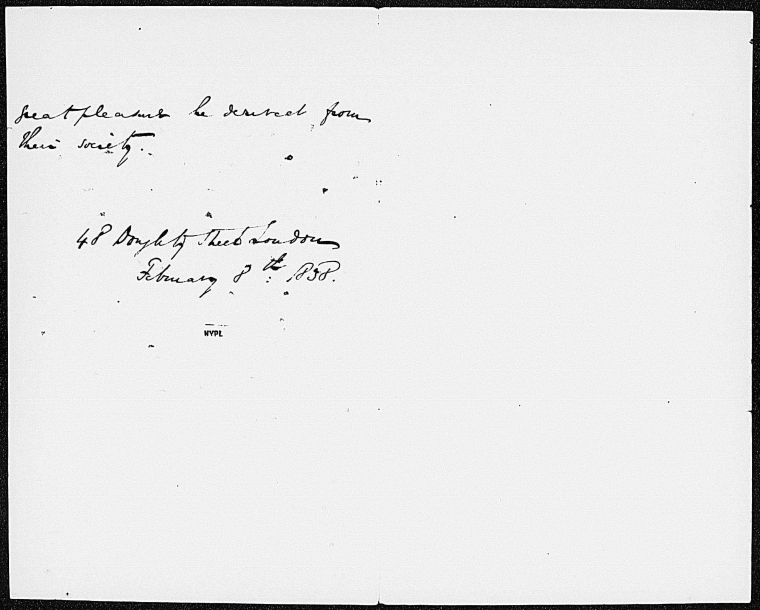 great pleasure he derived from
their society.
48 Doughty Street London
February 8th: 1838.
NYPL